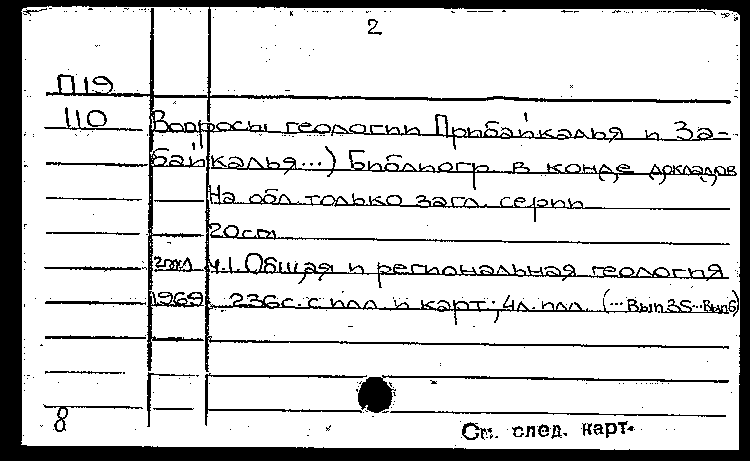 2
П19
110 Вопросы геологии Прибайкалья и За-
байкалья...) Библиогр. в конце докладов
На обл. только загл. серии
20см
2экл ч.1. Общая и региональная геология
1969. 236с. с илл. и карт; 4л. илл. (...Вып 3S...Вып6)
8
См. след. карт.